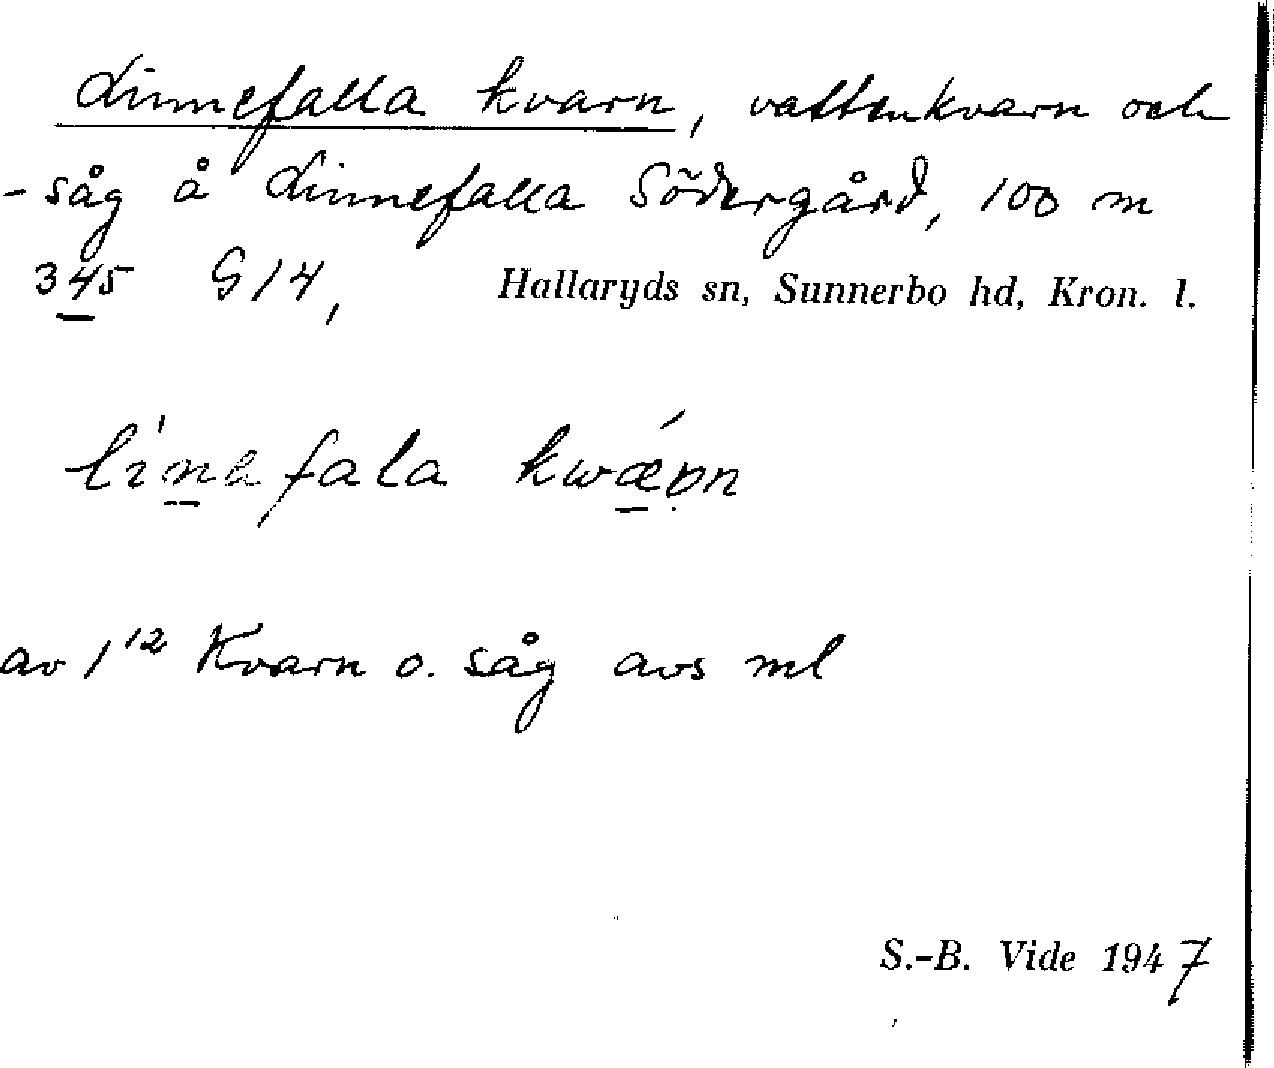 Linnefalla kvarn, vattenkvarn och
-såg å Linnefalla Södergård, 100 m
345 G14, Hallaryds sn, Sunnerbo hd, Kron. l.
av 1¹² Kvarn o. såg avs ml
S.-B. Vide 1947